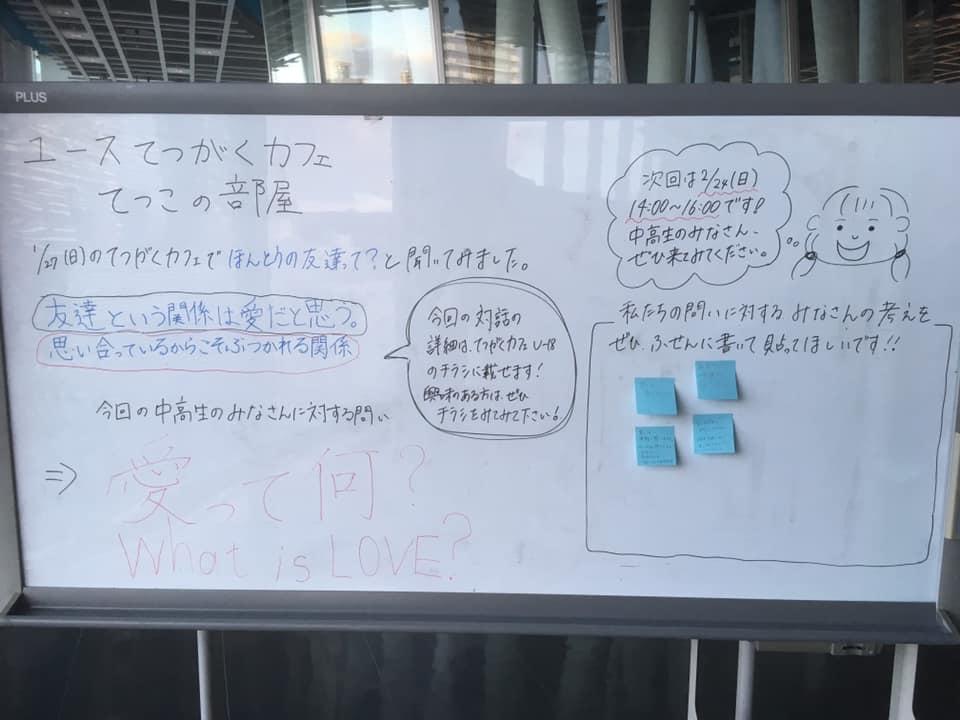 PLUS
ユースてつがくカフェ
てつこの部屋
1/27(日)のてつがくカフェで ほんとうの友達って？と聞いてみました。
友達という関係は愛だと思う。
思い合っているからこそぶつかれる関係
今回の対話の
詳細は、てつがくカフェU-18
のチラシに載せます！
興味のある方は、ぜひ
チラシをみてみて下さい！
今回の中高生のみなさんに対する問い
⇒ 愛って何？
What is LOVE?
次回は2/24(日)
14:00〜16:00です！
中高生のみなさん、
ぜひ来てみてください。
私たちの問いに対するみなさんの考えを
ぜひ、ふせんに書いて貼ってほしいです！！